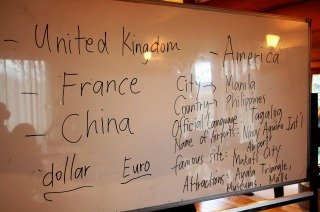 - United Kingdom
- France
- China
dollar Euro
- America
City → Manila
Country → Philippines
Official Language: Tagalog
Name of Airport: Ninoy Aquino Int'l
Airport
famous site: Makati City
Attractions: Ayala Triangle,
Museums, Malls